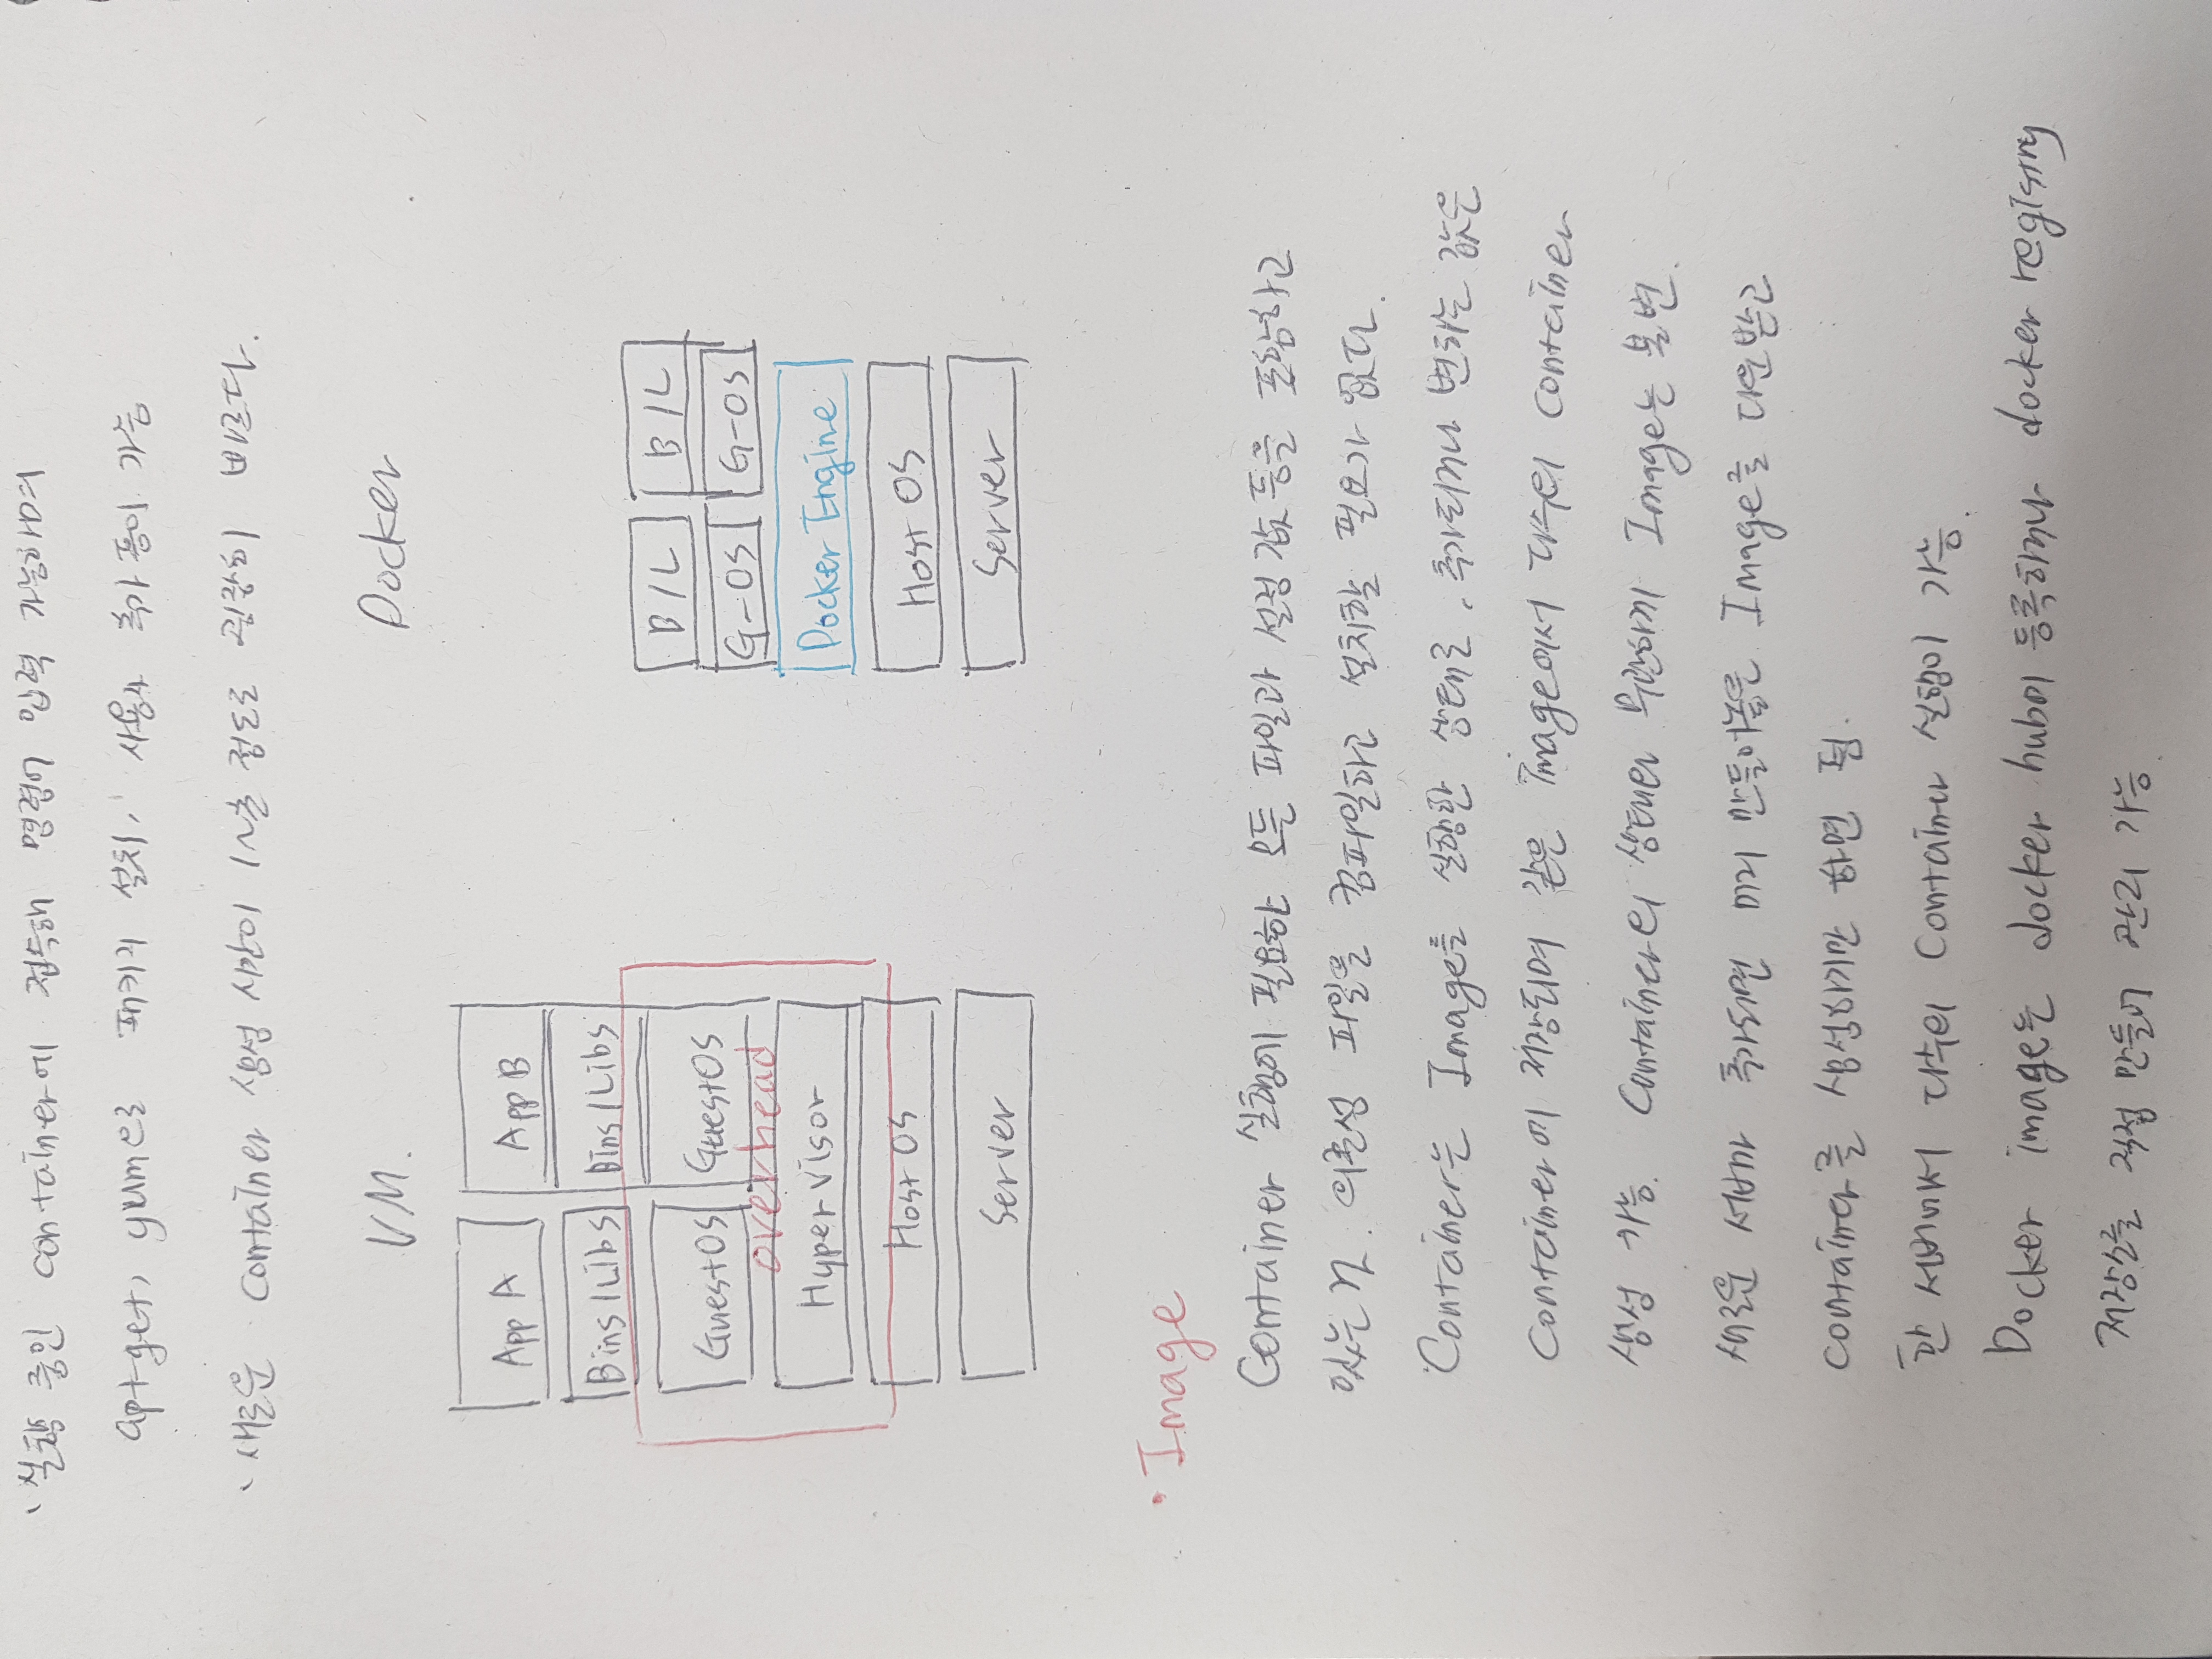 ` 실행 중인 container에 접속해 명령어 입력 가능하며
apt-get, yum으로 패키지 설치, 사용자 추가 등이 가능
` 새로운 container 생성 시간이 1~2초 정도로 굉장히 빠르다.
VM. Docker
App A App B
Bins/Libs Bins/Libs B/L B/L
GuestOS GuestOS G-OS G-OS
overhead
Hypervisor Docker Engine
Host OS Host OS
Server Server
· Image
Container 실행에 필요한 모든 파일과 설정 값 등을 포함하고
있는 것. 의존성 파일을 컴파일하고 설치할 필요가 없다.
Container는 Image를 실행한 상태로, 추가되거나 변하는 값은
Container에 저장되며 같은 Image에서 다수의 Container
생성 가능. Container의 상태에 무관하게 Image는 불변.
새로운 서버가 추가되면 미리 만들어놓은 Image를 다운받고
Container를 생성하기만 하면 됨.
한 서버에서 다수의 Container 실행이 가능.
Docker image는 docker hub에 등록하거나 docker registry
저장소를 직접 만들어 관리 가능